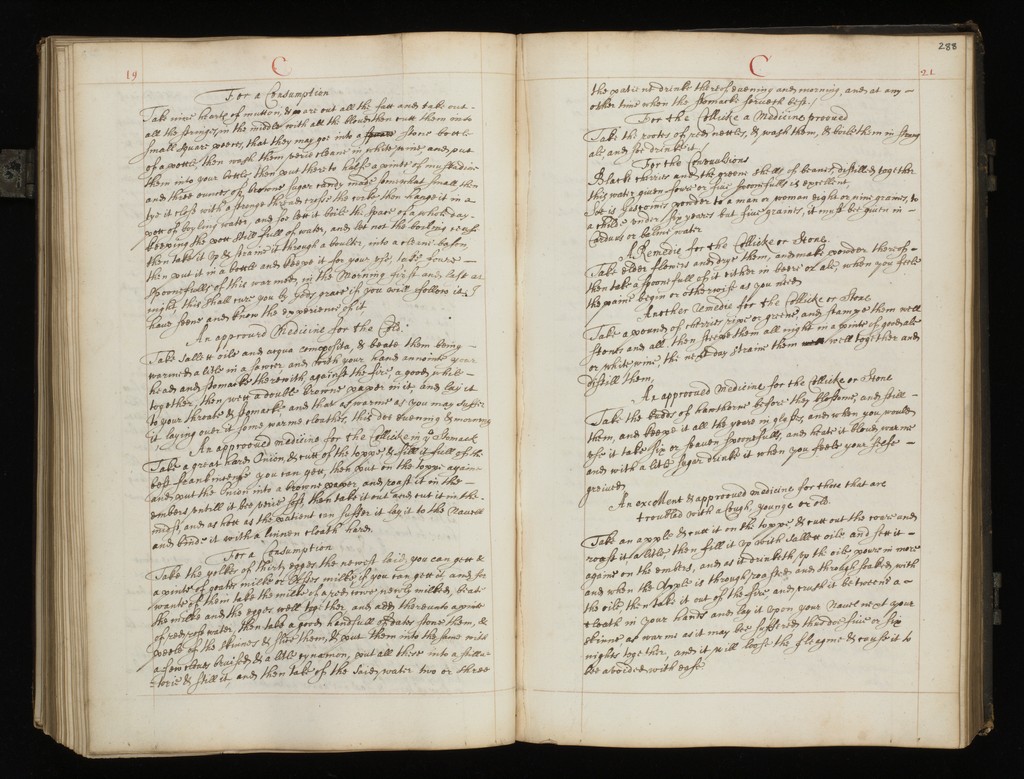 19
C
For a Consumption
Take nine hearts of mutton, & pare out all the fatt and take out
all the strings, in the middle with all the bloud then cutt them into
small square peeces, that they may goe into a stone bottle
of a pottle, then wash them verie cleane in white wine and put
them into your bottle, then put there to halfe a pinte of muskadine
and three ounces of browne sugar candy made somewhat small, then
tye it close with a stronge thread crosse the corke, then hange it in a
pott of boyling water, and soe lett it boile the space of a whole day
keeping the pott still full of water, and let not the boyling cease
then take it up & straine it through a boulter, into a cleane bason,
then put it in a bottle and keepe it for your use, take foure
spoonefulls of this warmed, in the Morning first and last at
night, this shall cure you by gods grace if you will follow it, I
have seene and know the experience of it
An approved Medicine for the Cold
Take sallett oile and aqua composita, & beate them being
warmed a litle in a sawcer and with your hand annointe your
head and stomacke therewith, against the fire, a good while
together, then wett a double browne paper in it, and lay it
to your throate & stomacke and that as warme as you may suffer
it laying over it some warme cloathes, this doe evening & morning
An approoved medicine for the Collicke in ye Stomack
Take a great hard Onion, & cutt of the toppe, & fill it full of the
best frankinsence you can gett, then put on the toppe againe
and put the Onion into a browne paper and roast it in the
embers untill it bee verie soft, then take it out and cut it in the
midst, and as hott as the patient can suffer it lay it to the Navell
and binde it with a linnen cloath hard.
For a Consumption
Take the yolkes of thirty egges the newest laid, you can gett &
a pinte of goates milke or Asses milke if you can gett it, and for
wante of them take the milke of a red cowe newly milked, beate
the milke and the egges well together, and adde thereunto a pinte
of red rose water, then take a good handfull of dates stone them, &
peele of the skinnes & slice them, & put them into the same with
a few cloves bruised, & a litle cynamon, put all these into a stilla=
=torie & still it, and then take of the said water two or three
288
21
C
the patient drinke thereof evening and morning, and at any
other time when the stomacke serveth best.
For the Collicke a Medicine prooved
Take the rootes of red nettles, & wash them, & boile them in strong
ale, and soe drinke it
For the Convultions
Black cherries and the greene shells of beanes, distilled together
this water given foure or five spoonfulls is excellent,
Soe is Gascoines powder to a man or woman eight or nine graines, to
a childe under six yeares but five graines, it must be given in
Carduus or balme water
A Remedie for the Collicke or Stone
Take elder flowers and drye them, and make powder thereof
then take a spoonefull of it either in beere or ale, when you feele
the paine begin or otherwise as you need
Another remedie for the Collicke or Stone
Take a pound of cherries ripe or greene, and stampe them well
stones and all, then steepe them all night in a pinte of good ale
or white wine, the next day straine them well together and
distill them,
An approoved medicine for the Collicke or Stone
Take the budds of hawthorne before they blossome, and still
them, and keepe it all the yeare in glasses, and when you would
use it take six or seaven spoonefulls, and heate it bloud warme
and with a litle sugar drinke it when you feele your selfe
greived
An excellent & approoved medicine for those that are
troubled with a Cough, younge or old.
Take an apple & cutt it on the toppe & cutt out the coare and
roost it a litle then fill it up with sallett oile and sett it
againe on the embers, and as it drinketh up the oile, power in more
and when the Apple is through roasted and through soaked with
the oile then take it out of the fire and crush it betweene a
cloath in your hands and lay it upon your Navel next your
skinne as warme as it may be suffered, thus doe five or six
nights together, and it will loose the fleagme & cause it to
be avoided with ease